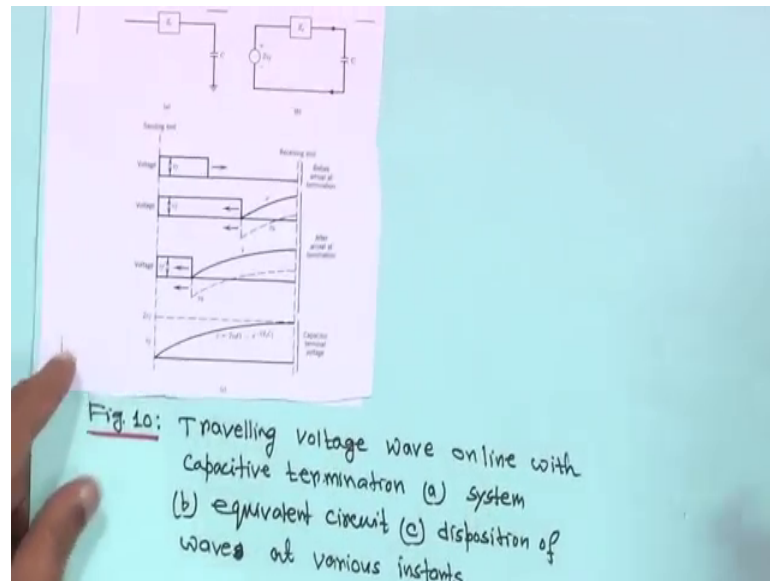 C
C
(a)
(b)
Sending end
Receiving end
Voltage
Before
arrival at
termination
Voltage
After
arrival at
termination
Voltage
Capacitor
terminal
voltage
(c)
Fig. 10: Travelling voltage wave on line with
capacitive termination (a) system
(b) equivalent circuit (c) disposition of
waves at various instants